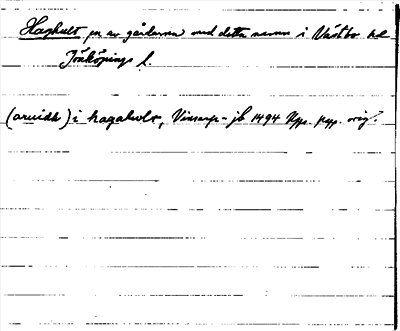 Haghult en av gårdarna med detta namn i Västbo hd
Jönköpings l.
(aruidh) i hagaholt, Vinsarp-jb 1494 Upps. pap. orig.